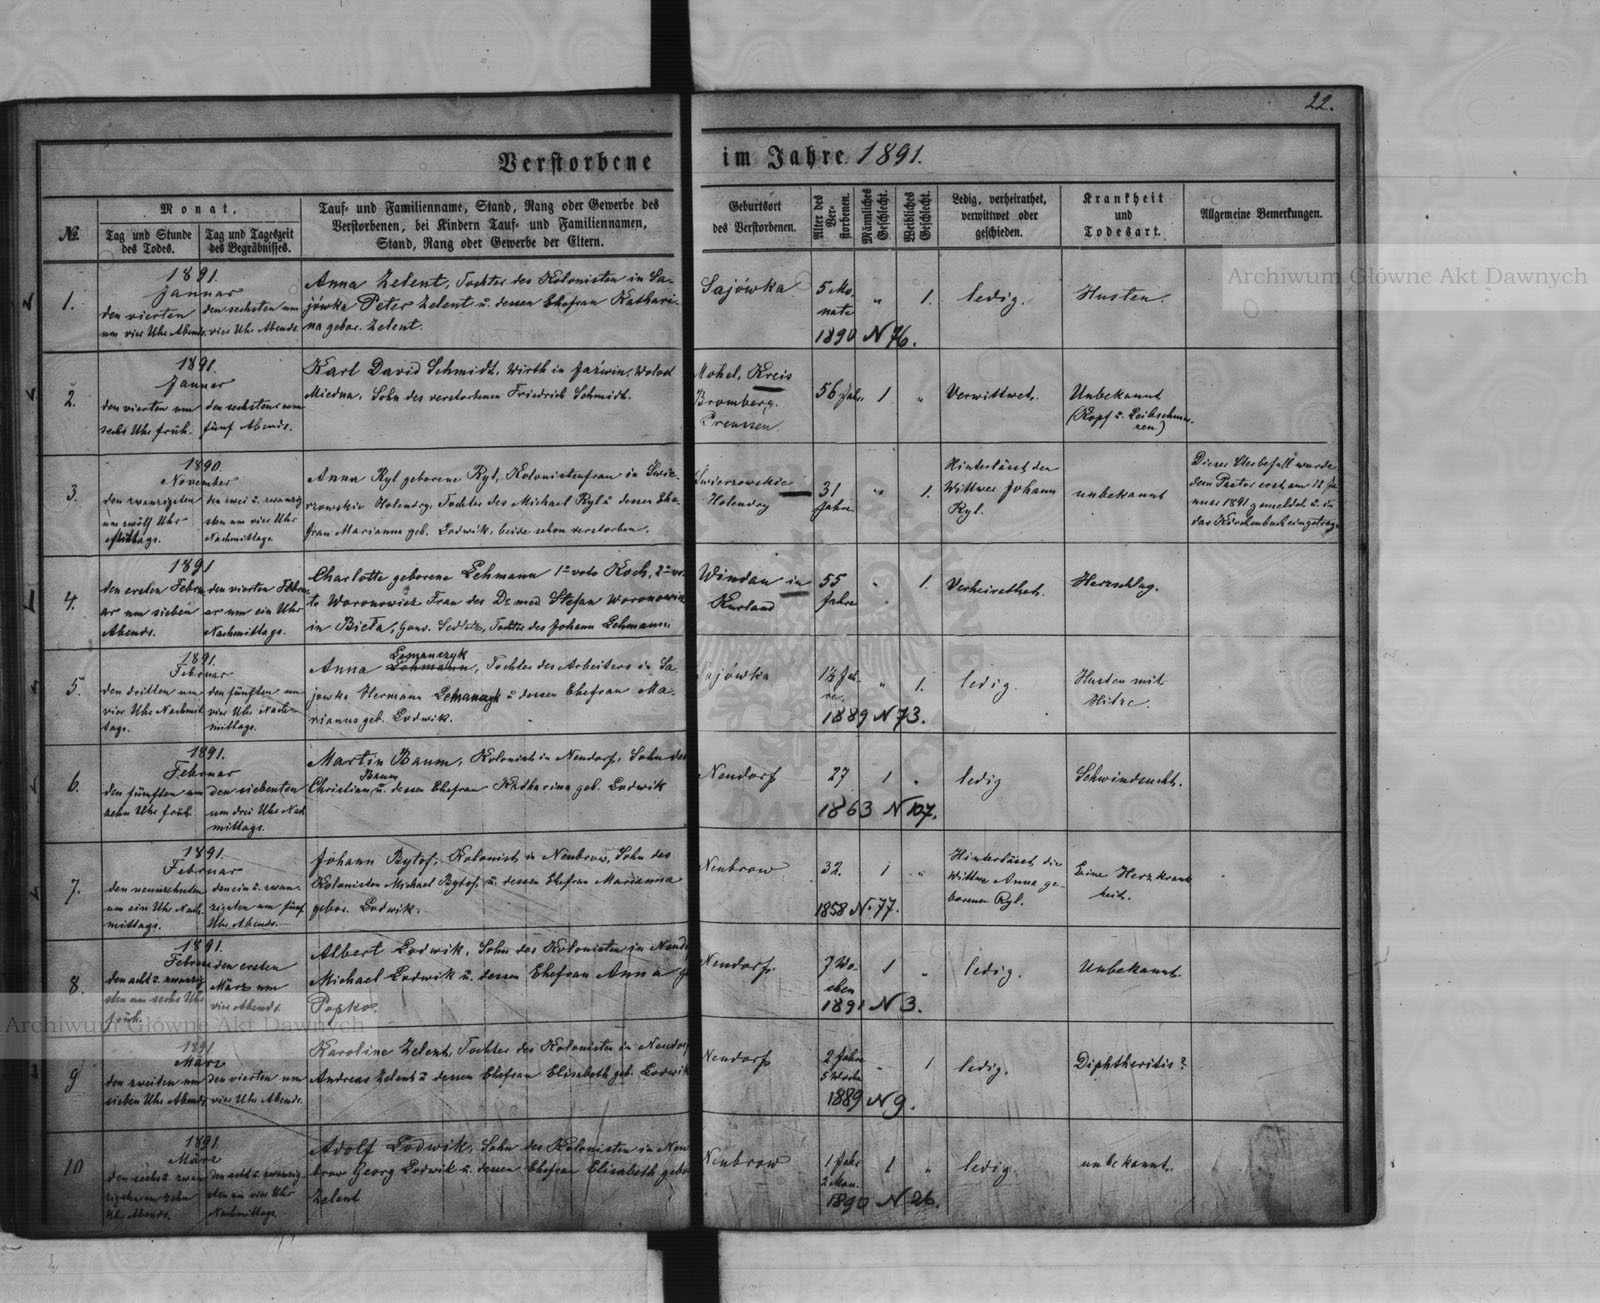 22.
Verstorbene im Jahre 1891.
№.
Monat.
Tag und Stunde des Todes.
Tag und Tageszeit des Begräbnisses.
Tauf- und Familienname, Stand, Rang oder Gewerbe des
Verstorbenen, bei Kindern Tauf- und Familiennamen,
Stand, Rang oder Gewerbe der Eltern.
Geburtsort
des Verstorbenen.
Alter des Ver-
storbenen.
Männliches
Geschlecht.
Weibliches
Geschlecht.
Ledig, verheirathet,
verwittwet oder
geschieden.
Krankheit
und
Todesart.
Allgemeine Bemerkungen.
1.
1891.
Januar
den vierten
um vier Uhr Abends.
den sechsten um
vier Uhr Abends.
Anna Zelent, Tochter des Kolonisten in Sa-
jówka Peter Zelent u. dessen Ehefrau Kathari-
na gebor. Zelent.
Sajówka
5 Mo-
nate
1890 N 76.
„
1.
ledig.
Husten.
2.
1891.
Januar
den vierten um
sechs Uhr früh.
den sechsten um
fünf Abends.
Karl David Schmidt, Wirth in Jaźwin, Wolost
Miedna, Sohn des verstorbenen Friedrich Schmidt.
Mohel, Kreis
Bromberg.
Preussen.
56 Jahr.
1.
„
Verwittwet.
Unbekannt
(Kopf u. Leibschmer-
zen.)
3.
1890.
November
den zwanzigsten
um zwölf Uhr
Mittags.
den zwei u. zwanzig-
sten um vier Uhr
Nachmittags.
Anna Ryl geborene Ryl, Kolonistenfrau in Swie-
rzowskie Holendry, Tochter des Michael Ryl u dessen Ehe-
frau Marianna geb. Lodwik, beide schon verstorben.
Swierzowskie
Holendry
31
Jahre
„
1.
Hinterlässt den
Wittwer Johann
Ryl.
unbekannt
Dieser Sterbefall wurde
dem Pastor erst am 18 Ja-
nuar 1891 gemeldet u. in
das Kirchenbuch eingetrag.
4.
1891
den ersten Febru-
ar um sieben
Abends.
den vierten Febru-
ar um ein Uhr
Nachmittags.
Charlotte geborene Lehmann 1° voto Koch, 2° vo-
to Woronowicz Frau des Dr. med Stefan Woronowicz
in Biała, Gouv. Sedletz, Tochter des Johann Lehmann
Windau in
Kurland
55
Jahre
„
1.
Verheirathet.
Herzschlag.
5.
1891.
Februar
den dritten um
vier Uhr Nachmit-
tags.
den fünften um
vier Uhr Nach-
mittags.
Lemanczyk
Anna Lehmann, Tochter des Arbeiters in Sa-
jowka Hermann Lemanczyk u dessen Ehefrau Ma-
rianna geb. Lodwik.
Sajówka
1½ Jah-
re.
1889 N 73.
„
1.
ledig.
Husten mit
Hitze.
6.
1891.
Februar
den fünften um
zehn Uhr früh.
den siebenten
um drei Uhr Nach-
mittags.
Martin Baum, Kolonist in Neudorf, Sohn des
Baum
Christian u. dessen Ehefrau Katharina geb. Lodwik
Neudorf
27
1863 N 107.
1
„
ledig
Schwindsucht.
7.
1891.
Februar
den neunzehnten
um ein Uhr Nach-
mittags.
den ein u. zwan-
zigsten um fünf
Uhr Abends.
Johann Bytof, Kolonist in Neubrow, Sohn des
Kolonisten Michael Bytof, u. dessen Ehefrau Marianna
gebor. Lodwik.
Neubrow
32.
1858 N. 77.
1
„
Hinterlässt die
Wittwe Anna ge-
borene Ryl.
Eine Herzkrank-
heit.
8.
1891.
Februar
den acht u. zwanzig-
sten um sechs Uhr
früh.
den ersten
März um
vier Abends
Albert Lodwik, Sohn des Kolonisten in Neudorf
Michael Lodwik u. dessen Ehefrau Anna g
Popko.
Neudorf.
7 Wo-
chen
1891 N 3.
1
„
ledig.
Unbekannt.
9
1891
März
den zweiten um
sieben Uhr Abends
den vierten um
vier Uhr Abends.
Karoline Zelent, Tochter des Kolonisten in Neudorf
Andreas Zelent u dessen Ehefrau Elisabeth geb. Lodwik
Neudorf
2 Jahre
5 Woche
1889 N 9.
„
1
ledig.
Diphtheritis?
10
1891.
März
den sechs u. zwan-
zigsten um zehn
Uhr Abends.
den acht u. zwanzig-
sten um vier Uhr
Nachmittags.
Adolf Lodwik, Sohn des Kolonisten in Neu-
brow Georg Lodwik u. dessen Ehefrau Elisabeth gebor
Zelent
Neubrow
1 Jahr
2 Mon.
1890 N 26.
1
„
ledig.
unbekannt.
Archiwum Główne Akt Dawnych
Archiwum Główne Akt Dawnych